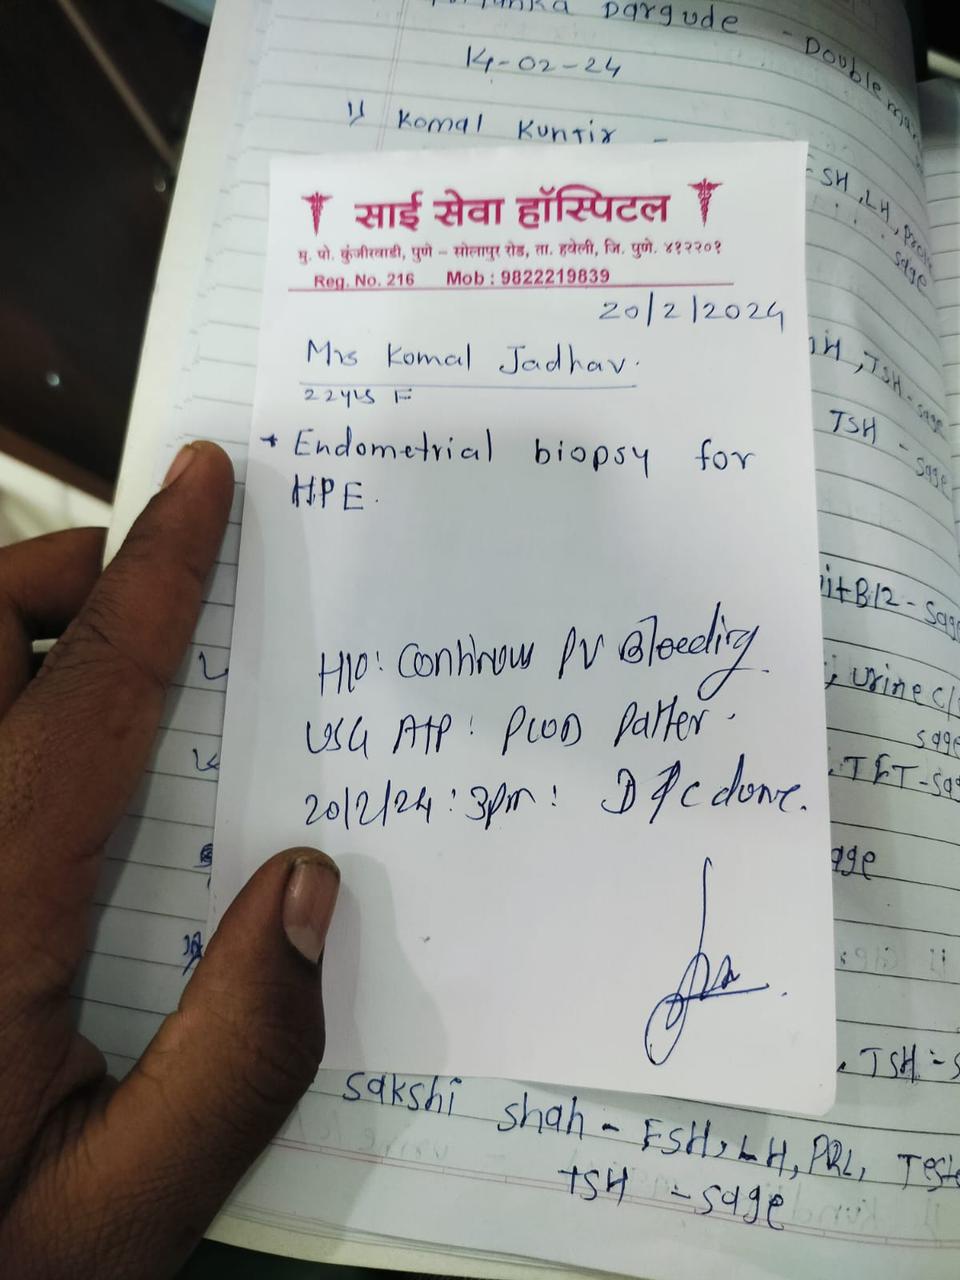 Dargude - Double mar
14-02-24
1) Komal Kuntir -
SH, LH, Prol
sage
साई सेवा हॉस्पिटल
मु. पो. कुंजीरवाडी, पुणे – सोलापूर रोड, ता. हवेली, जि. पुणे. ४१२२०१
Reg. No. 216 Mob : 9822219839
20/2/2024
Mrs Komal Jadhav.
22yrs F
* Endometrial biopsy for
HPE.
H/O: Continous PV Bleeding.
USG A+P: PCOD Patter.
20/2/24: 3pm: D&C done.
H, TSH - sage
TSH - sage
it B12 - sage
; urine c/
sage
. TFT - sag
age
. TSH - s
sakshi shah - FSH, LH, PRL, Teste
TSH - sage